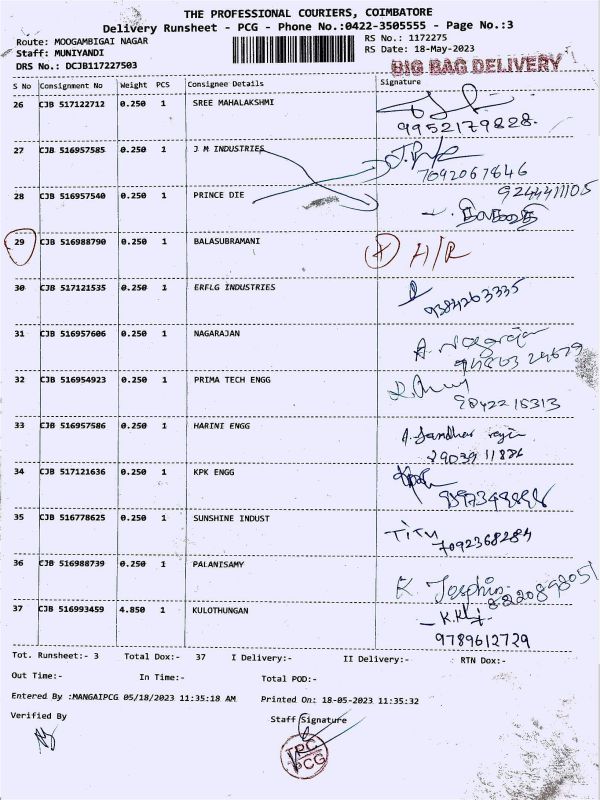 THE PROFESSIONAL COURIERS, COIMBATORE
Delivery Runsheet - PCG - Phone No.:0422-3505555 - Page No.:3
Route: MOOGAMBIGAI NAGAR RS No.: 1172275
Staff: MUNIYANDI RS Date: 18-May-2023
DRS No.: DCJB117227503
BIG BAG DELIVERY
S No Consignment No Weight PCS Consignee Details Signature
26 CJB 517122712 0.250 1 SREE MAHALAKSHMI
9952179828.
27 CJB 516957585 0.250 1 J M INDUSTRIES
7092067846
28 CJB 516957540 0.250 1 PRINCE DIE 9244411105
29 CJB 516988790 0.250 1 BALASUBRAMANI H/R
30 CJB 517121535 0.250 1 ERFLG INDUSTRIES
9384263335
31 CJB 516957606 0.250 1 NAGARAJAN A. Nagarajan
32 CJB 516954923 0.250 1 PRIMA TECH ENGG
9842215313
33 CJB 516957586 0.250 1 HARINI ENGG
34 CJB 517121636 0.250 1 KPK ENGG
35 CJB 516778625 0.250 1 SUNSHINE INDUST TITU
7092368284
36 CJB 516988739 0.250 1 PALANISAMY K. Josphin
8220898051
37 CJB 516993459 4.850 1 KULOTHUNGAN
9789612729
Tot. Runsheet:- 3 Total Dox:- 37 I Delivery:- II Delivery:- RTN Dox:-
Out Time:- In Time:- Total POD:-
Entered By :MANGAIPCG 05/18/2023 11:35:18 AM Printed On: 18-05-2023 11:35:32
Verified By Staff Signature
TPC
PCG